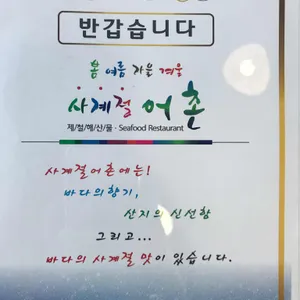 반갑습니다
봄 여름 가을 겨울
사계절 어촌
제/철/해/산/물 - Seafood Restaurant
사계절어촌에는!
바다의향기,
산지의 신선함
그리고...
바다의 사계절 맛이 있습니다.